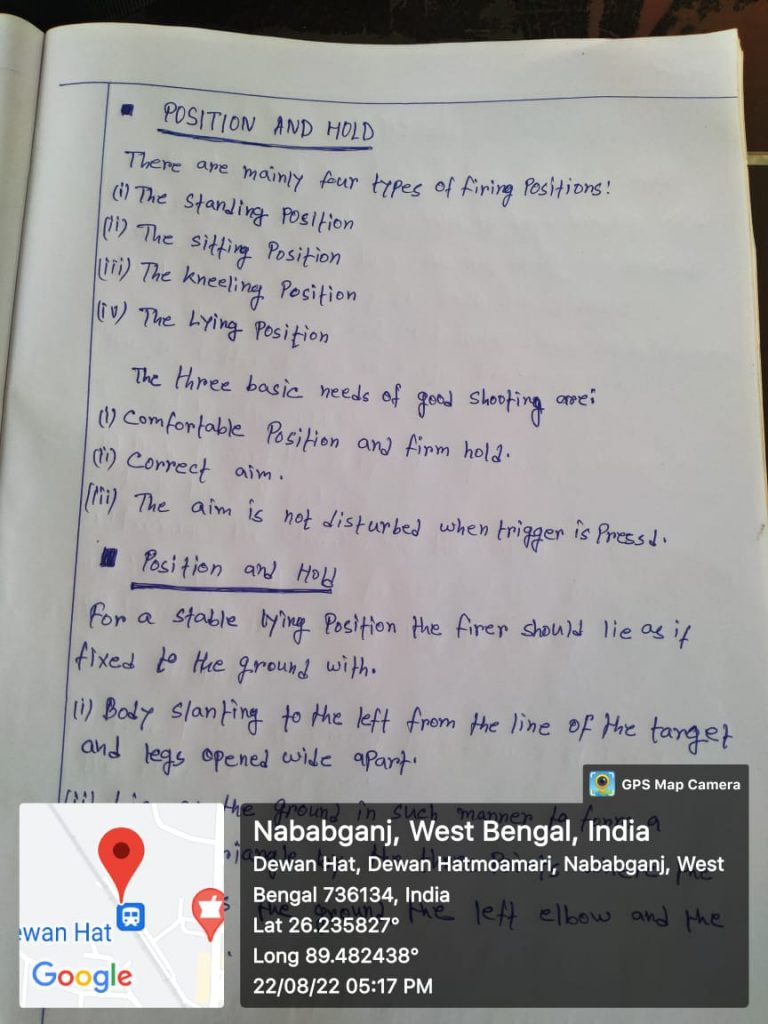 POSITION AND HOLD
There are mainly four types of firing Positions:
(i) The standing Position
(ii) The sitting Position
(iii) The kneeling Position
(iv) The Lying Position
The three basic needs of good shooting are:
(i) Comfortable Position and firm hold.
(ii) Correct aim.
(iii) The aim is not disturbed when trigger is Pressd.
Position and Hold
For a stable lying Position the firer should lie as if
fixed to the ground with.
(i) Body slanting to the left from the line of the target
and legs opened wide apart.
the ground in such manner to form a
the
the ground the left elbow and the
GPS Map Camera
Nababganj, West Bengal, India
Dewan Hat, Dewan Hatmoamari, Nababganj, West
Bengal 736134, India
Lat 26.235827°
Long 89.482438°
22/08/22 05:17 PM
ewan Hat
Google